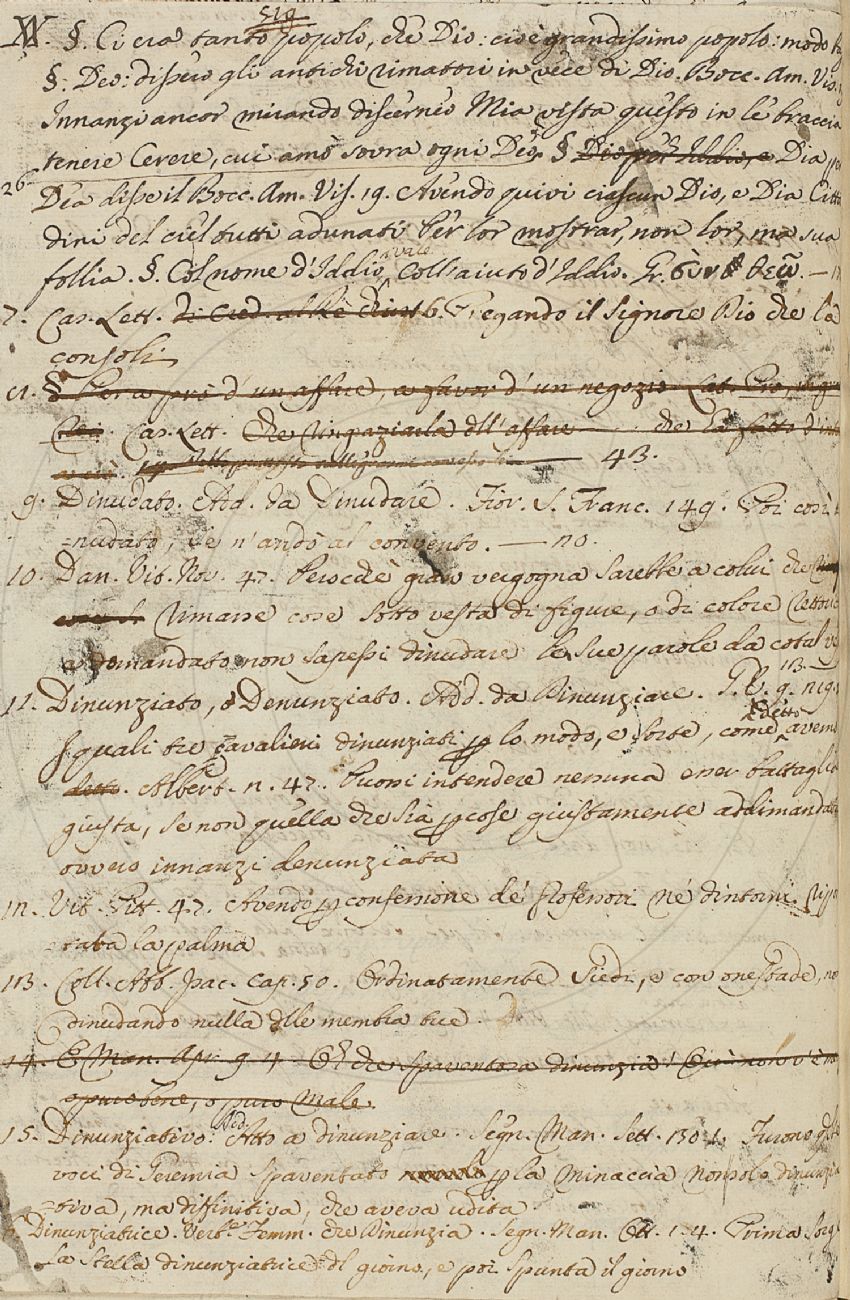 §. Ci era tanto popolo, che Dio: cioè grandissimo popolo: modo
§. Deo: dissero gli antichi rimatori in vece di Dio. Bocc. Am. Vis.
Innanzi ancor mirando discerneo Mia vista questo in le braccia
tenere Cerere, cui amò sovra ogni Deo. § Dio per Iddio, e Dia per
26 Dea disse il Bocc. Am. Vis. 19. Avendo quivi ciascun Dio, e Dia Citta
dini del ciel tutti adunati Per lor mostrar, non lor, ma sua
follia. §. Col nome d'Iddio, vale Coll'aiuto d'Iddio. Gr. σὺν θεῷ. —
7. Cas. Lett. 6. Pregando il Signore Dio che la
consoli
§ Per a prò d'un affare, a favor d'un negozio Lat. Pro,
Cas. Lett. Che ringraziarla dell'affare — che ha fatto
— 43.
9. Dinudato. Add. da Dinudare. Fior. S. Franc. 149. Poi così
=nudato, se n'andò al convento. — no.
10. Dan. Vit. Nov. 47. Perocchè gran vergogna sarebbe a colui che
rimasse cose sotto vesta di figure, o di colore rettori
e domandato non sapessi dinudare le sue parole da cotal ve
11. Dinunziato, e Denunziato. Add. da Dinunziare. G. V. 9.
I quali tre cavalieri dinunziati per lo modo, e sorte, come detto avemo
detto. Albert. n. 47. Puossi intendere nessuna esser battaglia
giusta, se non quella che sia per cose giustamente addimandate
ovvero innanzi denunziata
12. Vit. Pitt. 47. Avendo per confessione de' professori né dintorni
=tata la palma
113. Coll. Abb. Isac. Cap. 50. Ordinatamente siedi, e con onestade, no
dinudando nulla delle membra tue.
14. Man. Apr. 9. 4 Oh che spaventosa dinunzia! Qui non v'è
o puro bene, o puro male.
15. Dinunziativo. Add. Atto a dinunziare. Segn. Man. Sett. 130 1. Furono
voci di Geremia spaventato per la minaccia non solo dinunzia
=tiva, ma diffinitiva, che aveva udita.
Dinunziatrice. Verb. Femm. che Dinunzia. Segn. Man. Ott. 1. 4. Prima sorge
La stella dinunziatrice del giorno, e poi spunta il giorno